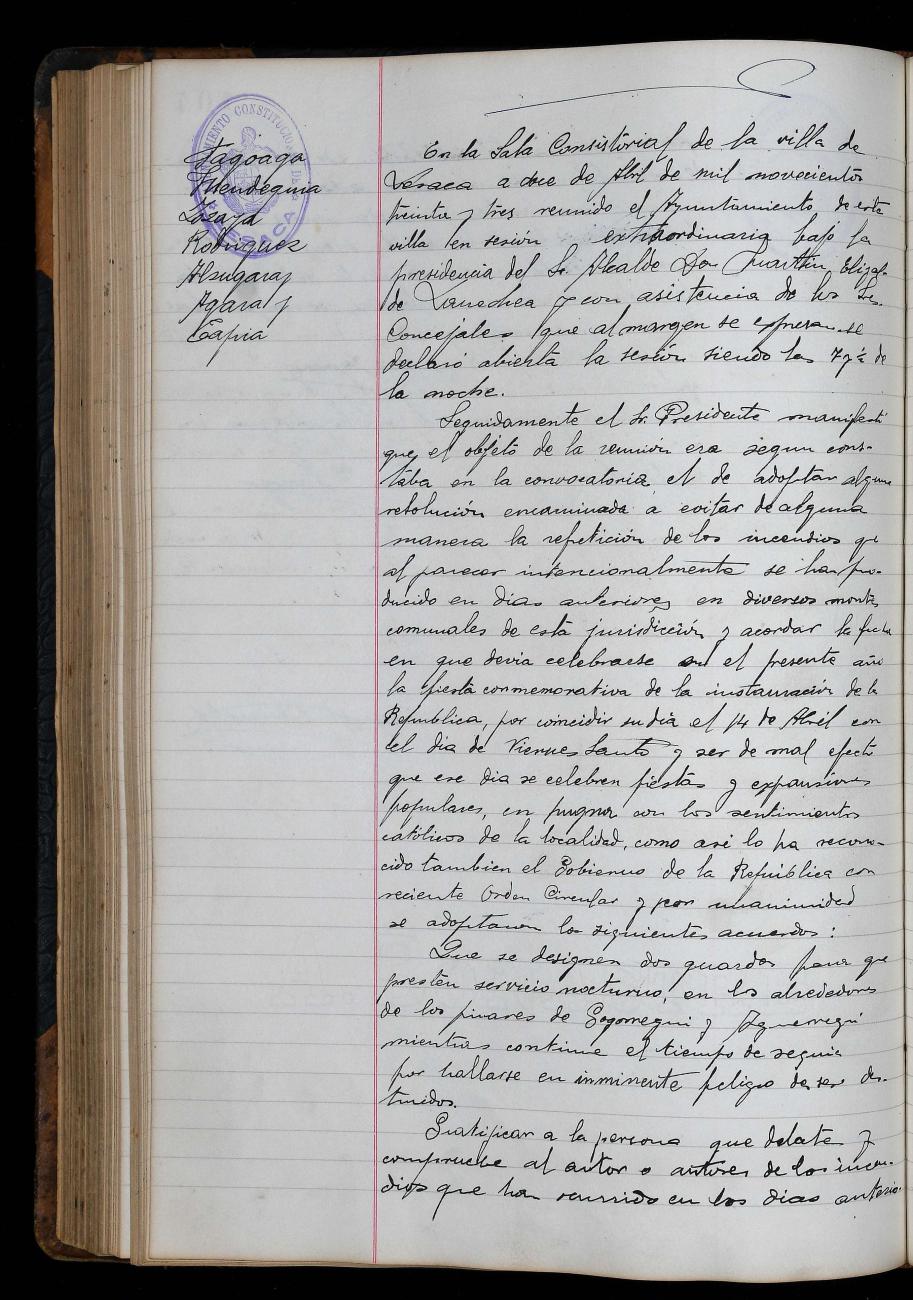 AYUNTAMIENTO CONSTITUCIONAL DE LESACA
Tagoaga
Mendeguia
Zozaya
Rodriguez
Alzugaray
Agara y
Tapia
En la Sala Consistorial de la villa de
Lesaca a doce de Abril de mil novecientos
treinta y tres reunido el Ayuntamiento de esta
villa en sesión extraordinaria bajo la
presidencia del Sr. Alcalde Don Martin Elizal-
de Lanechea y con asistencia de los Sres.
Concejales que al margen se expresan se
declaró abierta la sesión siendo las 7 y ½ de
la noche.
Seguidamente el Sr. Presidente manifestó
que el objeto de la reunión era segun cons-
taba en la convocatoria el de adoptar alguna
resolución encaminada a evitar de alguna
manera la repetición de los incendios que
al parecer intencionalmente se han pro-
ducido en dias anteriores en diversos montes
comunales de esta jurisdicción y acordar la fecha
en que devia celebrarse en el presente año
la fiesta conmemorativa de la instauración de la
Republica, por coincidir su dia el 14 de Abril con
el dia de Viernes Santo y ser de mal efecto
que ese dia se celebren fiestas y expansiones
populares, en pugna con los sentimientos
católicos de la localidad, como asi lo ha recono-
cido tambien el Gobierno de la República con
reciente Orden Circular y por unanimidad
se adoptaron los siguientes acuerdos:
Que se designen dos guardas para que
presten servicio nocturno, en los alrededores
de los pinares de Gogorregui y Aguerregui
mientras continue el tiempo de sequia
por hallarse en inminente peligro de ser des-
truidos.
Gratificar a la persona que delate y
compruebe al autor o autores de los incen-
dios que han ocurrido en los dias anterio-